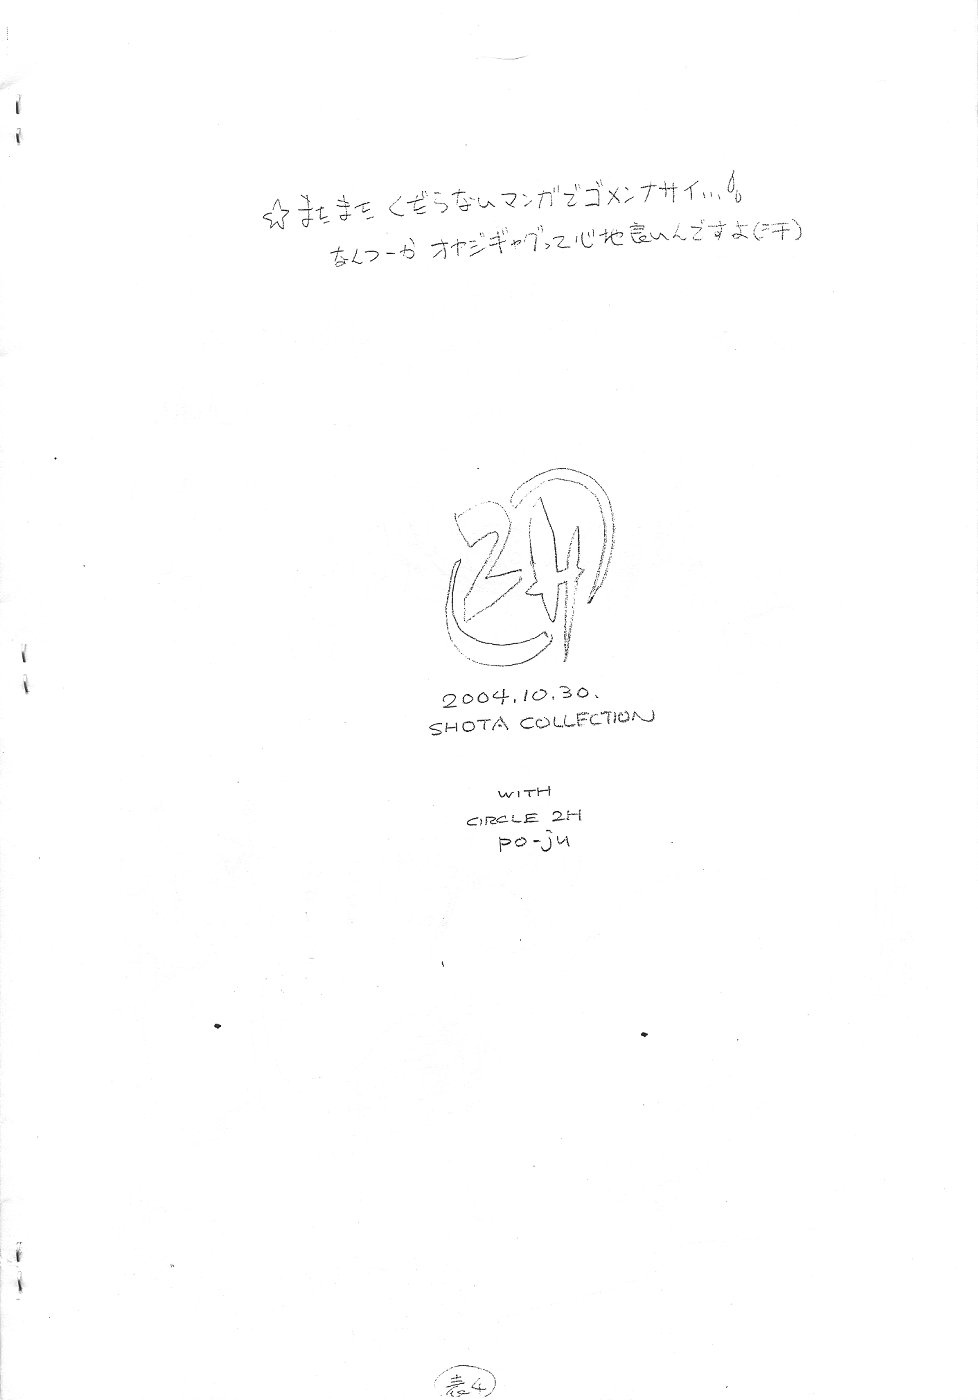 ☆またまたくだらないマンガでゴメンナサイ...
なんつーかオヤジギャグって心地良いんですよ(汗)
2H
2004.10.30.
SHOTA COLLECTION
WITH
CIRCLE 2H
po-ju
表4